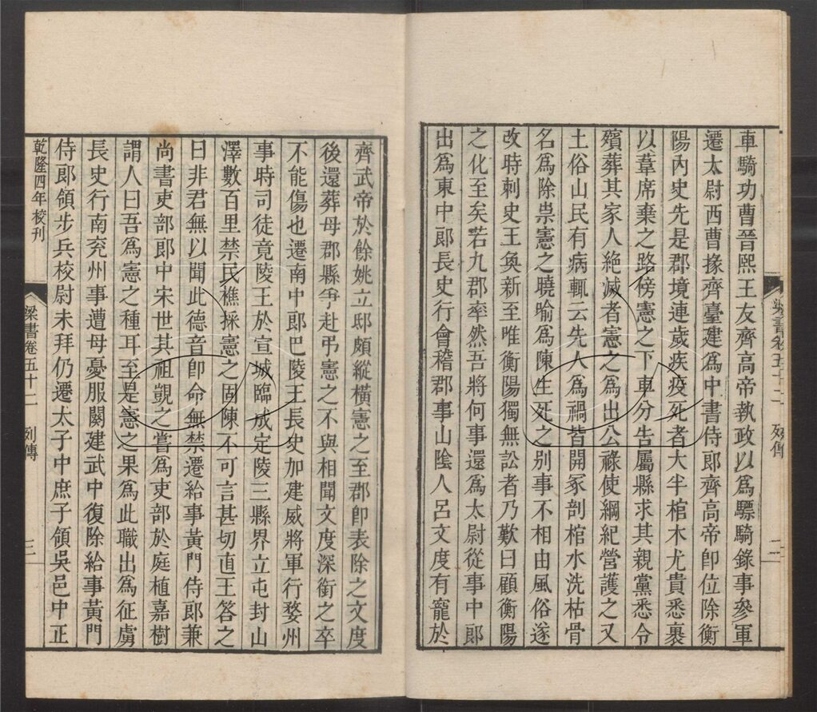 車騎功曹晉熙王友齊高帝執政以爲驃騎錄事參軍
遷太尉西曹掾齊臺建爲中書侍郎齊高帝卽位除衡
陽內史先是郡境連歲疾疫死者大半棺木尤貴悉裹
以葦席棄之路傍憲之下車分告屬縣求其親黨悉令
殯葬其家人絶滅者憲之爲出公祿使綱紀營護之又
土俗山民有病輒云先人爲禍皆開冢剖棺水洗枯骨
名爲除祟憲之曉喻爲陳生死之别事不相由風俗遂
改時刺史王奐新至唯衡陽獨無訟者乃歎曰顧衡陽
之化至矣若九郡率然吾將何事還爲太尉從事中郎
出爲東中郎長史行會稽郡事山陰人呂文度有寵於
梁書卷五十二 列傳 二
齊武帝於餘姚立邸頗縱橫憲之至郡卽表除之文度
後還葬母郡縣爭赴弔憲之不與相聞文度深銜之卒
不能傷也遷南中郎巴陵王長史加建威將軍行婺州
事時司徒竟陵王於宣城臨成定陵三縣界立屯封山
澤數百里禁民樵採憲之固陳不可言甚切直王答之
曰非君無以聞此德音卽命無禁遷給事黃門侍郎兼
尚書吏部郎中宋世其祖覬之嘗爲吏部於庭植嘉樹
謂人曰吾爲憲之種耳至是憲之果爲此職出爲征虜
長史行南兖州事遭母憂服闋建武中復除給事黃門
侍郎領步兵校尉未拜仍遷太子中庶子領吳邑中正
乾隆四年校刊
梁書卷五十二 列傳 三